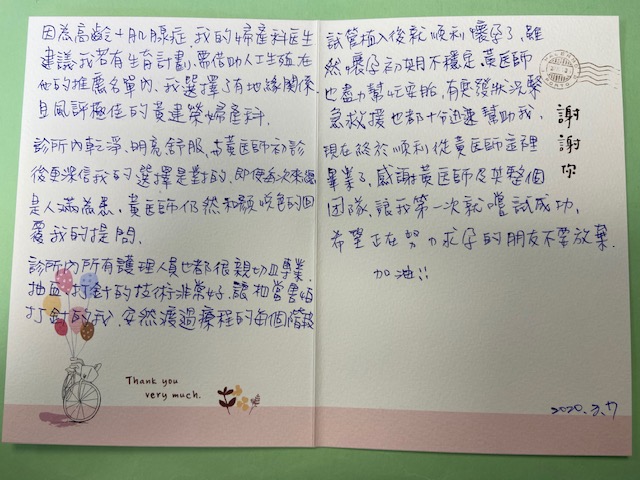 因為高齡+肌腺症,我的婦產科醫生
建議我若有生育計劃,需借助人工生殖,在
他的推薦名單內,我選擇了有地緣關係
且風評極佳的黃建榮婦產科.
診所內乾淨、明亮舒服,與黃医師初診
後更深信我的選擇是對的,即使每次來診
是人滿為患,黃医師仍然和顏悅色的回
覆我的提問.
診所內所有護理人員也都很親切且專業,
抽血、打針的技術非常好,讓相當害怕
打針的我,安然渡過療程的每個階段
Thank you
very much.
試管植入後就順利懷孕了,雖
然懷孕初期不穩定,黃医師
也盡力幫忙安胎,有突發狀況緊
急救援也都十分迅速幫助我,
現在終於順利從黃医師這裡
畢業了,感謝黃医師及其整個
團隊,讓我第一次就嚐試成功,
希望正在努力求孕的朋友不要放棄.
加油!!
謝謝你
2020.3.17